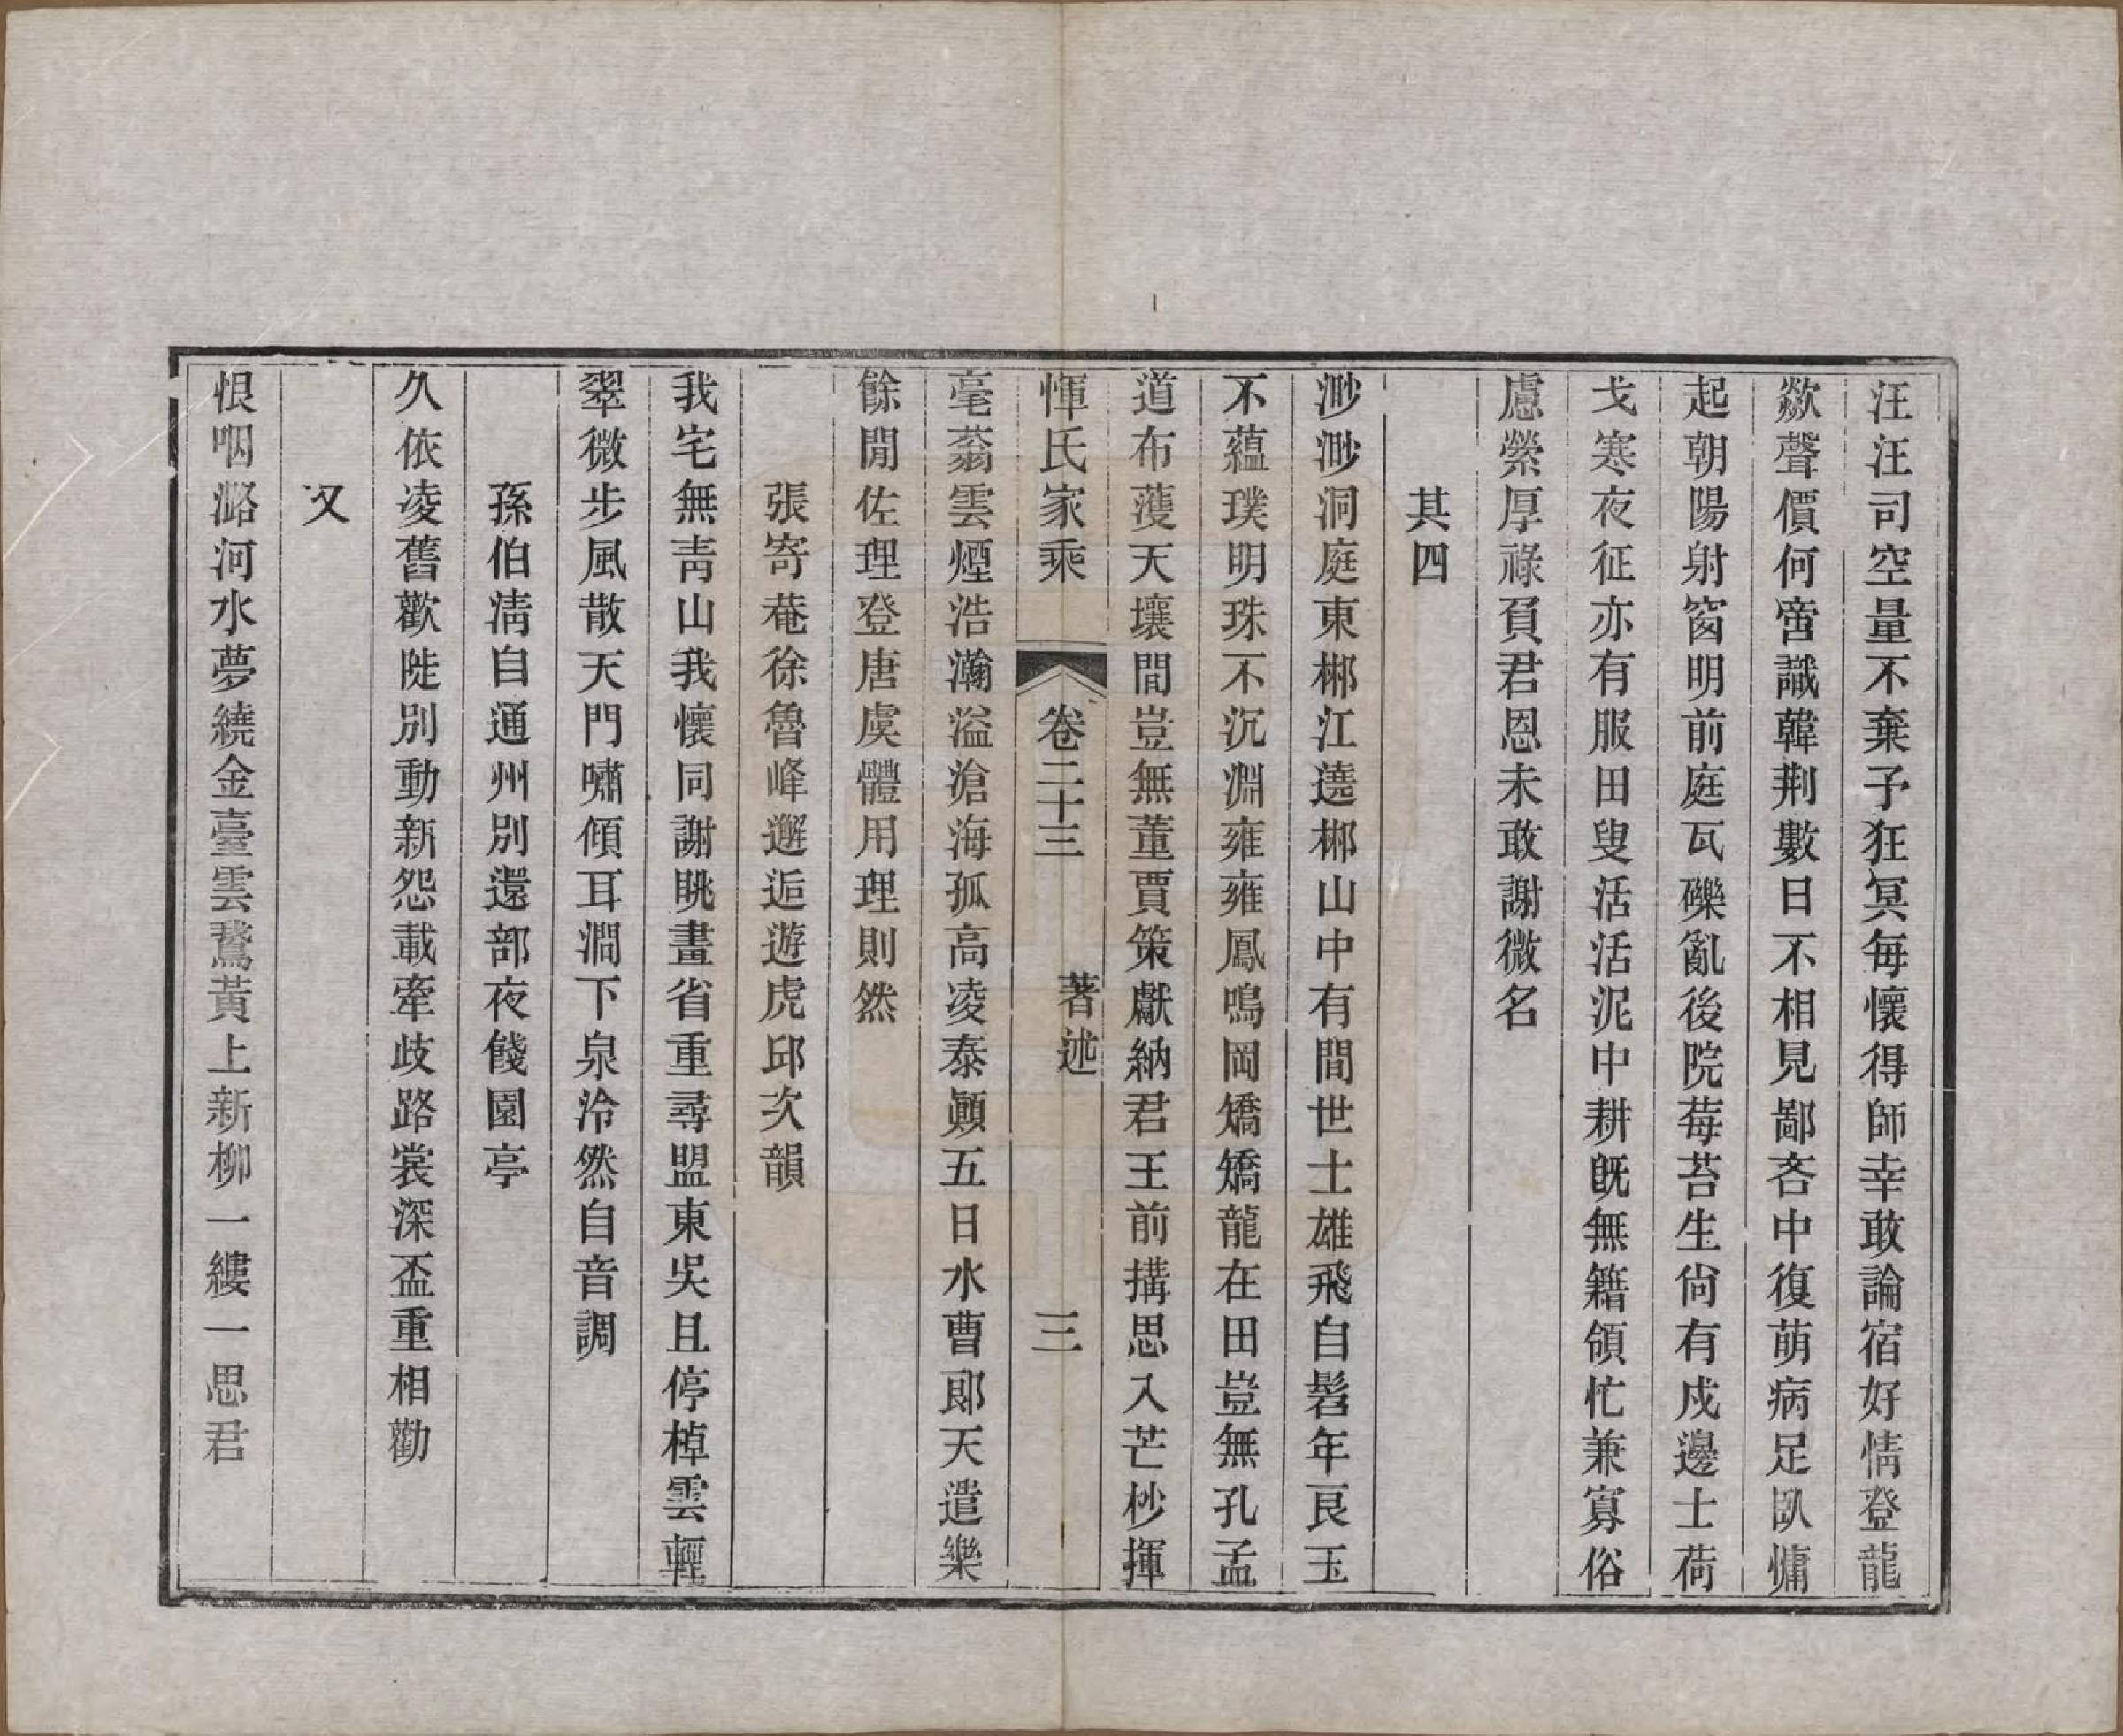 汪汪司空量不棄予狂冥每懷得師幸敢論宿好情登龍
歘聲價何啻識韓荆數日不相見鄙吝中復萌病足臥慵
起朝陽射窗明前庭瓦礫亂後院莓苔生尙有戍邊士荷
戈寒夜征亦有服田叟活活泥中耕旣無籍領忙兼寡俗
慮縈厚祿負君恩未敢謝微名
其四
渺渺洞庭東郴江遶郴山中有間世士雄飛自髫年良玉
不蘊璞明珠不沉淵雍雍鳳鳴岡矯矯龍在田豈無孔孟
道布濩天壤間豈無董賈策獻納君王前搆思入芒杪揮
惲氏家乘 卷二十三 著述 三
毫蓊雲煙浩瀚溢滄海孤高凌泰顚五日水曹郞天遣樂
餘閒佐理登唐虞體用理則然
張寄菴徐魯峰邂逅遊虎邱次韻
我宅無靑山我懷同謝眺畫省重尋盟東吳且停棹雲輕
翠微步風散天門嘯傾耳澗下泉泠然自音調
孫伯淸自通州別還部夜餞園亭
久依凌舊歡陡別動新怨載牽歧路裳深盃重相勸
又
恨咽潞河水夢繞金臺雲鶖黃上新柳一縷一思君